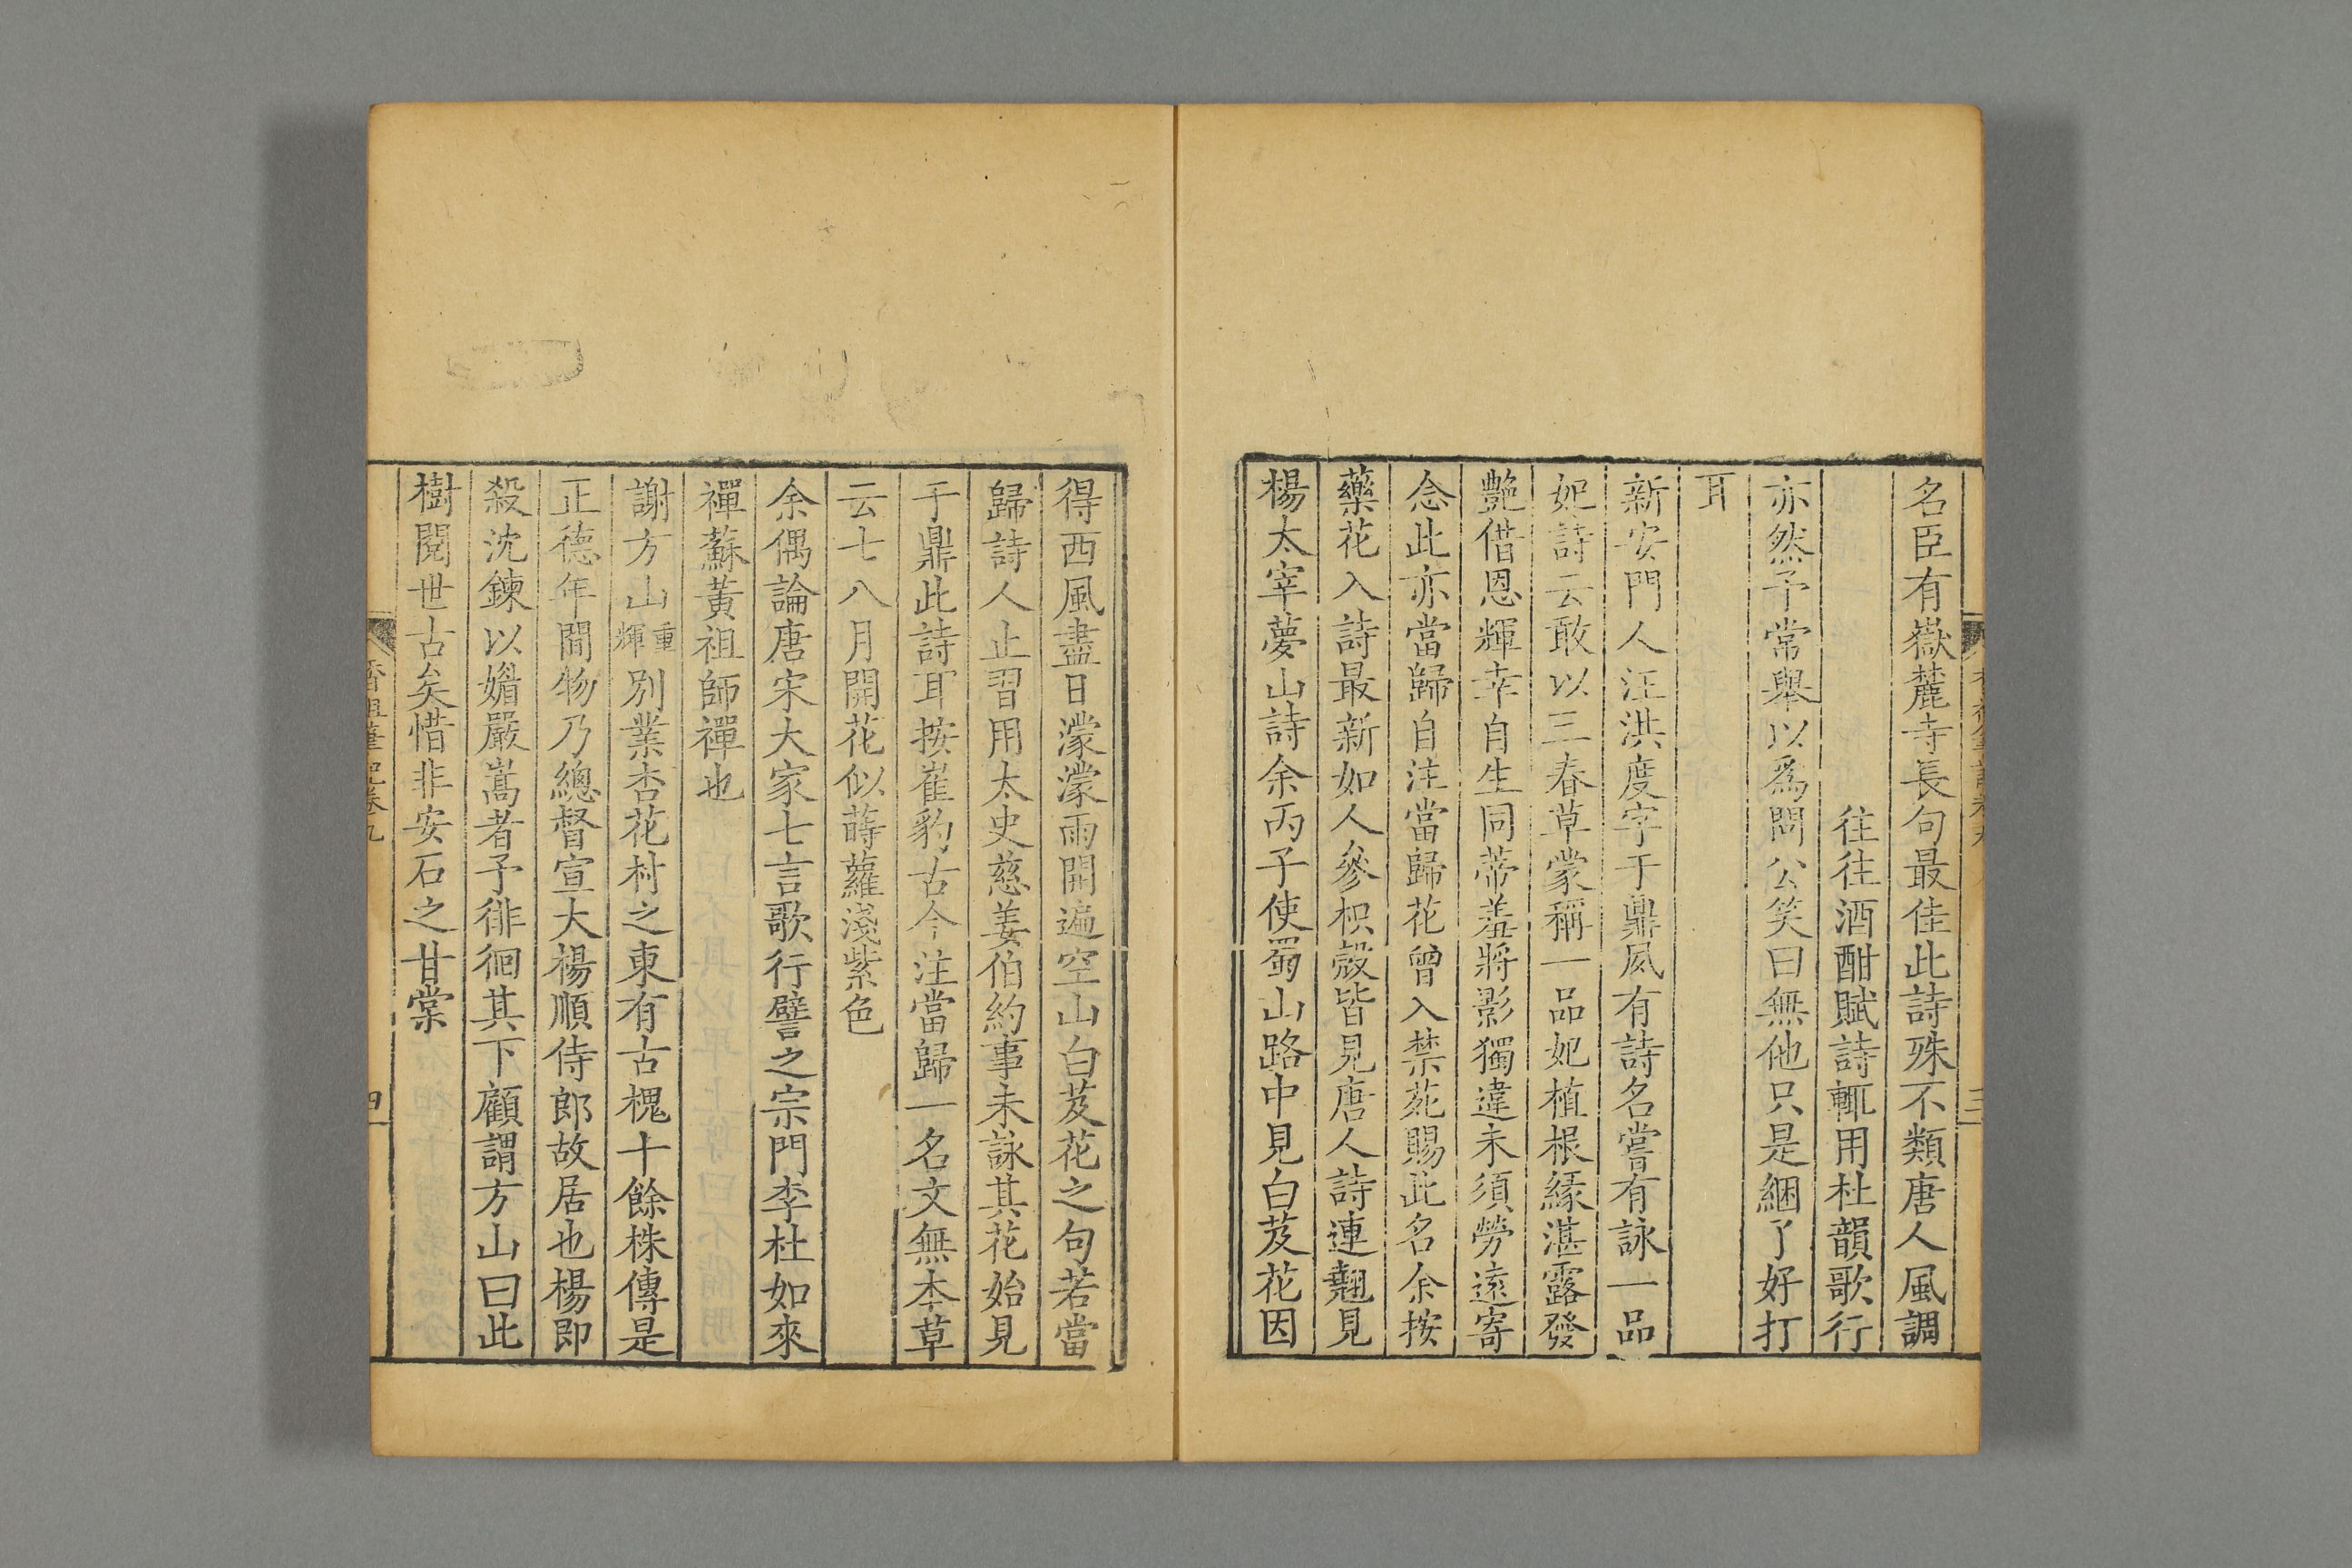 名臣有嶽麓寺長句最佳此詩殊不類唐人風調
往往酒酣賦詩輒用杜韻歌行
亦然予常舉以爲問公笑曰無他只是綑了好打
耳
新安門人汪洪度字于鼎夙有詩名嘗有詠一品
妃詩云敢以三春草蒙稱一品妃植根緣湛露發
艷借恩輝幸自生同蒂羞將影獨違未須勞遠寄
念此亦當歸自注當歸花曾入禁苑賜此名余按
藥花入詩最新如人參枳殼皆見唐人詩連翹見
楊太宰夢山詩余丙子使蜀山路中見白芨花因
得西風盡日濛濛雨開遍空山白芨花之句若當
歸詩人止習用太史慈姜伯約事未詠其花始見
于鼎此詩耳按崔豹古今注當歸一名文無本草
云七八月開花似蒔蘿淺紫色
余偶論唐宋大家七言歌行譬之宗門李杜如來
禪蘇黃祖師禪也
謝方山重輝別業杏花村之東有古槐十餘株傳是
正德年間物乃總督宣大楊順侍郎故居也楊即
殺沈鍊以媚嚴嵩者予徘徊其下顧謂方山曰此
樹閱世古矣惜非安石之甘棠
香祖筆記卷九